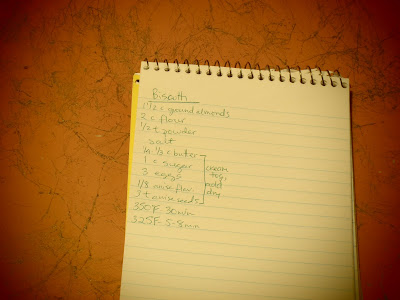 Biscotti
1 1/2 c ground almonds
2 c flour
1/2 t powder
salt
1/3 c butter
1 c sugar
3 eggs
1/3 anise flav.
3 t anise seeds
cream
tog,
add
dry
350°F 30min
325F 5-8min